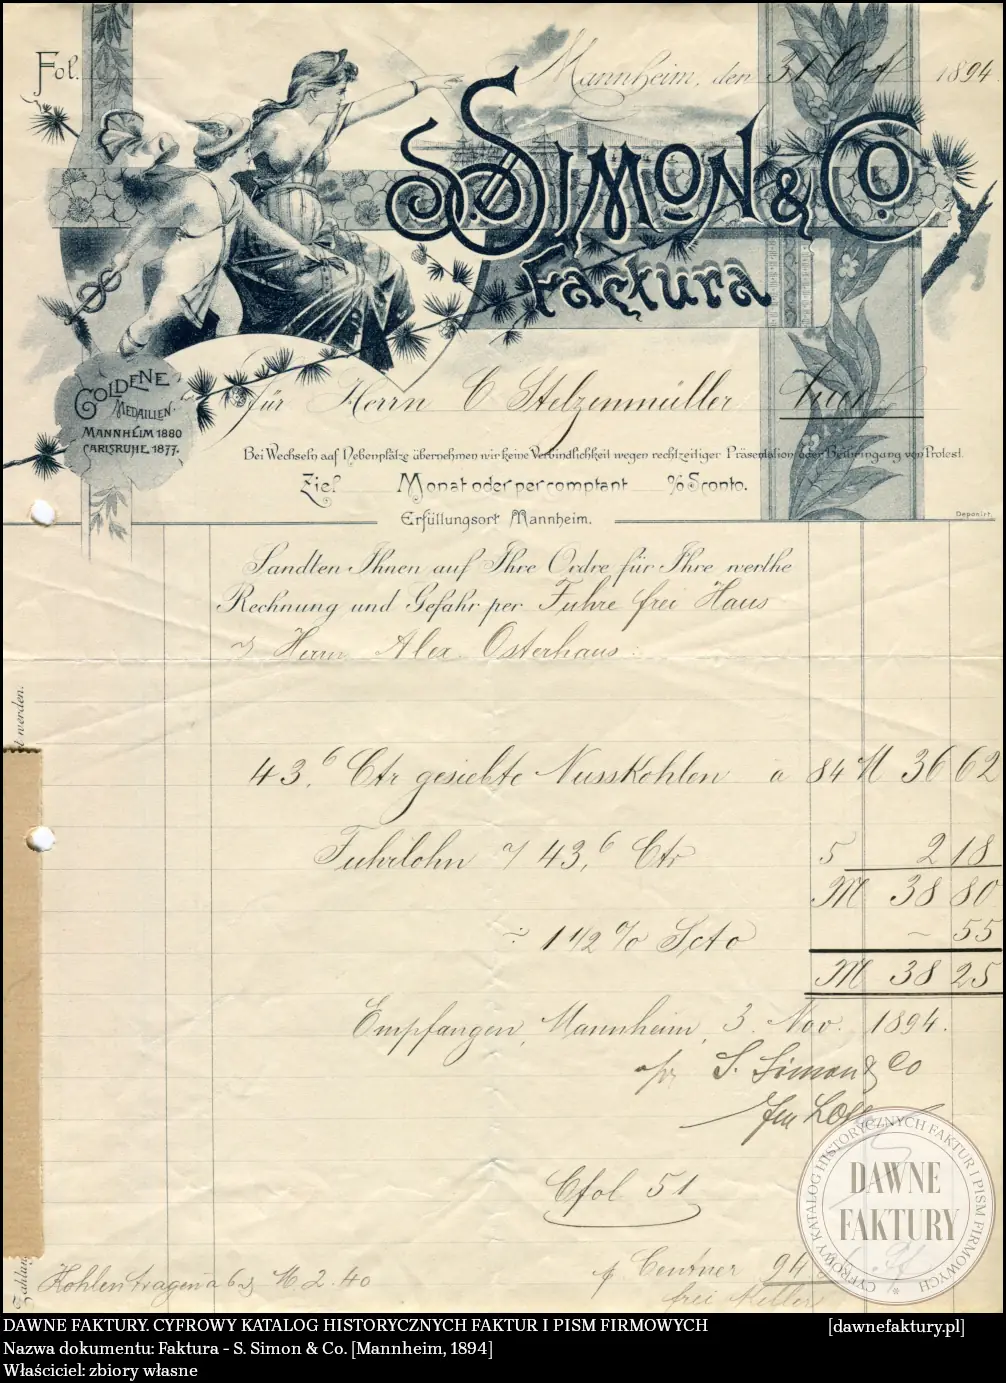 Fol.
Mannheim, den 31 Oct 1894
S. Simon & Co.
Factura
GOLDENE
MEDAILIEN.
MANNHEIM 1880
CARLSRUHE 1877.
für Herrn C Stelzenmüller
Bei Wechseln auf Nebenplätze übernehmen wir keine Verbindlichkeit wegen rechtzeitiger Präsentation oder Beibringung von Protest.
Ziel Monat oder per comptant % Sconto.
Erfüllungsort Mannheim.
Deponirt.
Sandten Ihnen auf Ihre Ordre für Ihre werthe
Rechnung und Gefahr per Fuhre frei Haus
Herrn Alex. Osterhaus:
werden.
43,6 Ctr gesiebte Nusskohlen a 84 M 36 62
Fuhrlohn 43,6 Ctr 5 2 18
M 38 80
÷ 1 1/2 % Scto - 55
M 38 25
Empfangen, Mannheim, 3. Nov. 1894.
S. Simon & Co
Cfol 51
Kohlentragen a 6 M. 2.40
p. Centner 94
frei Keller
Zahlung
CYFROWY KATALOG HISTORYCZNYCH FAKTUR I PISM FIRMOWYCH
DAWNE
FAKTURY
DAWNE FAKTURY. CYFROWY KATALOG HISTORYCZNYCH FAKTUR I PISM FIRMOWYCH [dawnefaktury.pl]
Nazwa dokumentu: Faktura - S. Simon & Co. [Mannheim, 1894]
Właściciel: zbiory własne